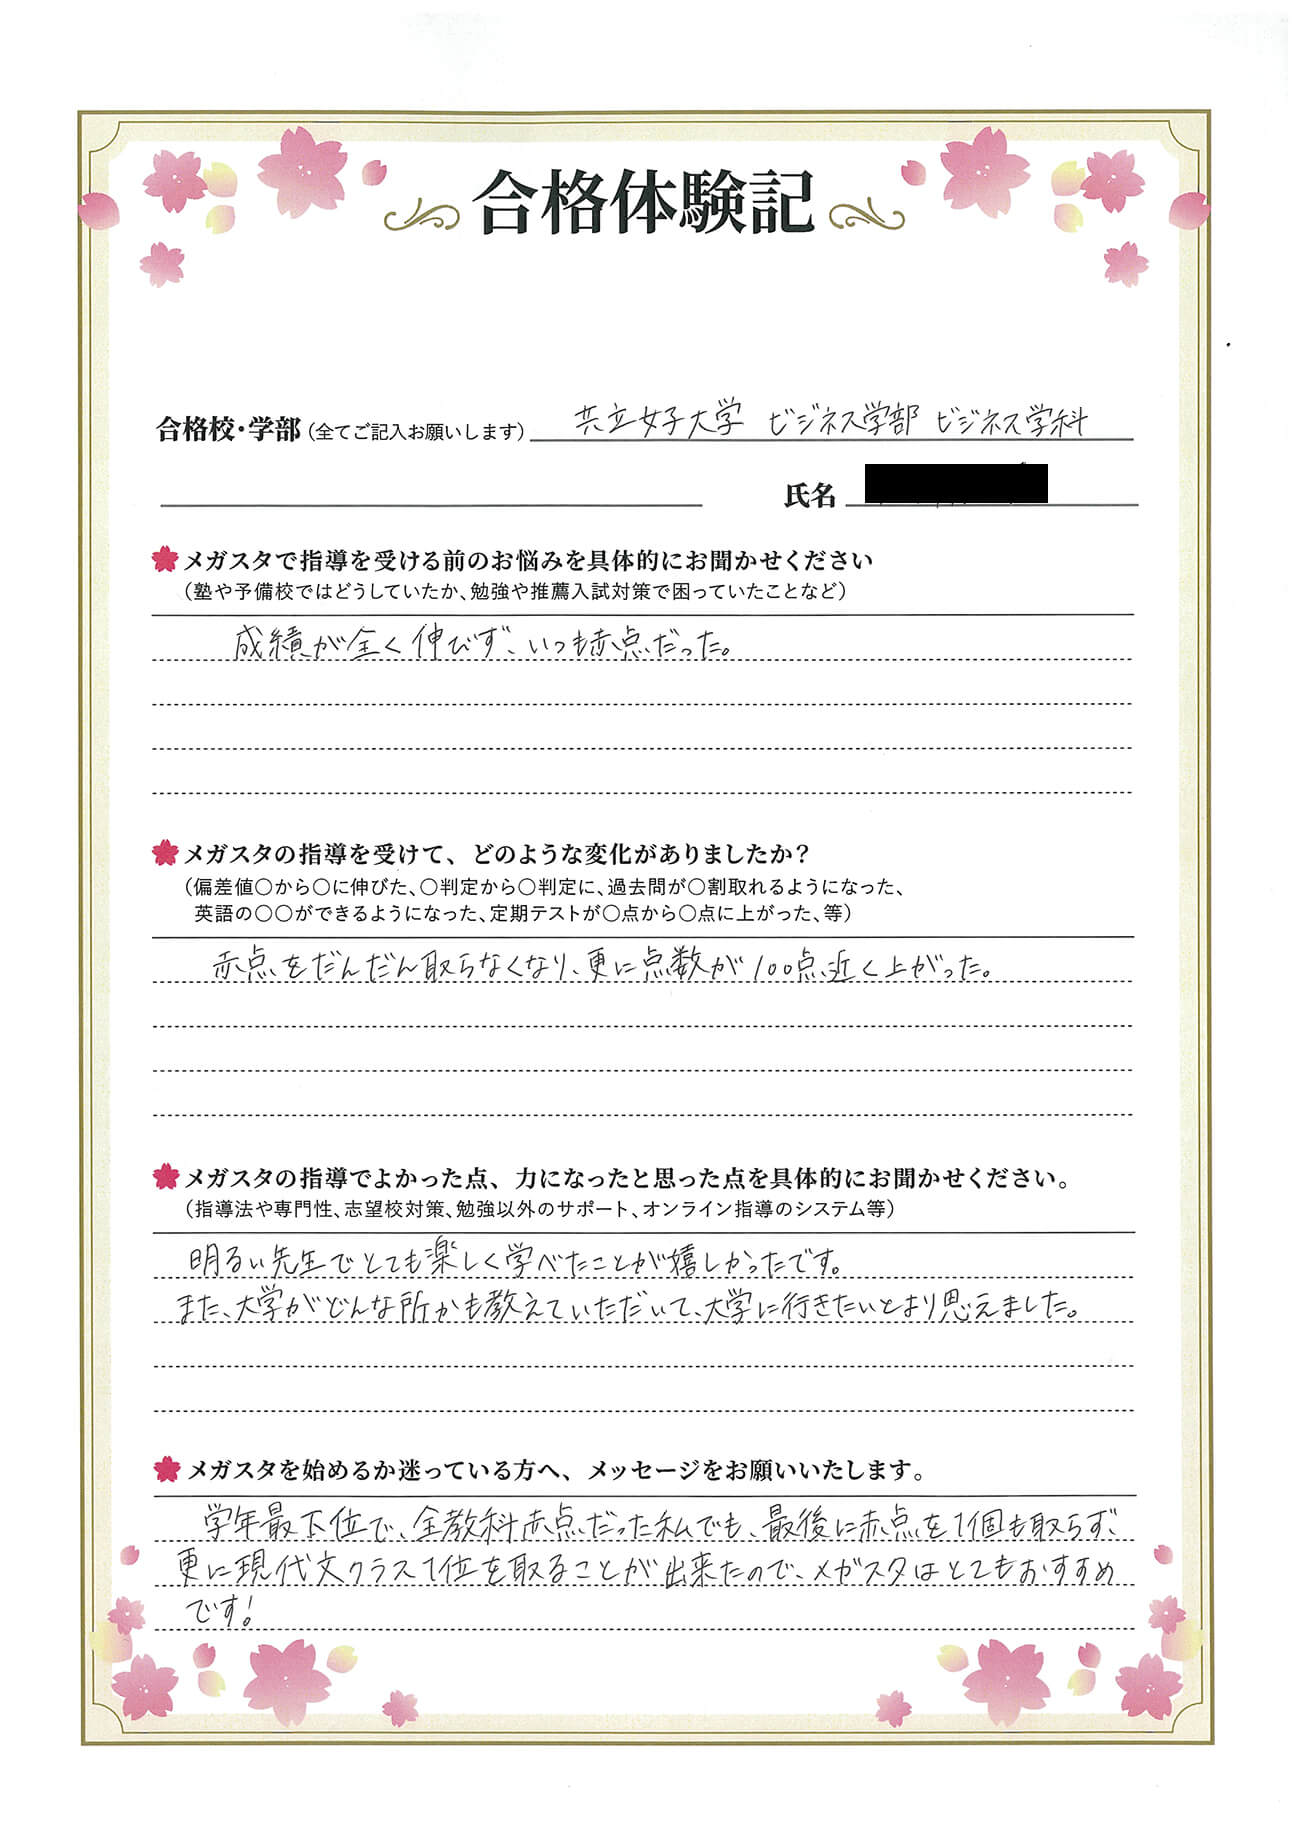 合格体験記
合格校・学部(全てご記入お願いします) 共立女子大学 ビジネス学部 ビジネス学科
氏名
メガスタで指導を受ける前のお悩みを具体的にお聞かせください
(塾や予備校ではどうしていたか、勉強や推薦入試対策で困っていたことなど)
成績が全く伸びず、いつも赤点だった。
メガスタの指導を受けて、どのような変化がありましたか?
(偏差値〇から〇に伸びた、〇判定から〇判定に、過去問が〇割取れるようになった、
英語の〇〇ができるようになった、定期テストが〇点から〇点に上がった、等)
赤点をだんだん取らなくなり、更に点数が100点近く上がった。
メガスタの指導でよかった点、力になったと思った点を具体的にお聞かせください。
(指導法や専門性、志望校対策、勉強以外のサポート、オンライン指導のシステム等)
明るい先生でとても楽しく学べたことが嬉しかったです。
また、大学がどんな所かも教えていただいて、大学に行きたいとより思えました。
メガスタを始めるか迷っている方へ、メッセージをお願いいたします。
学年最下位で、全教科赤点だった私でも、最後に赤点を1個も取らず、
更に現代文クラス1位を取ることが出来たので、メガスタはとてもおすすめ
です!